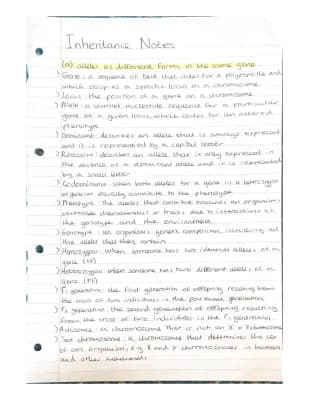 Inheritance Notes
(a) alleles as different forms of the same gene
> Gene: a sequence of DNA that codes for a polypeptide and
which occupies a specific locus on a chromosome
> Locus: the position of a gene on a chromosome
> Allele: a variant nucleotide sequence for a particular
gene at a given locus, which codes for an altered
phenotype
> Dominant: describes an allele that is always expressed
and it is represented by a capital letter
> Recessive: describes an allele that is only expressed in
the absence of a dominant allele and it is represented
by a small letter
> Codominance: when both alleles for a gene in a heterozygous
organism equally contribute to the phenotype
> Phenotype: The alleles that contribute towards an organism's
observable characteristics or traits due to interactions of
the genotype and the environment
> Genotype: an organism's genetic composition, including all
the alleles that they contain
> Homozygous: when someone has two identical alleles of a
gene
> Heterozygous: when someone has two different alleles of a
gene
> F₁ generation: the first generation of offspring resulting
from the cross of two individuals is the parental generation
> F₂ generation: the second generation of offspring resulting
from the cross of two individuals is the F₁ generation
> Autosome: a chromosome that is not an X or Y chromosome
> Sex chromosome: a chromosome that determines the sex
of an organism, e.g. X and Y chromosomes in humans
and other mammals